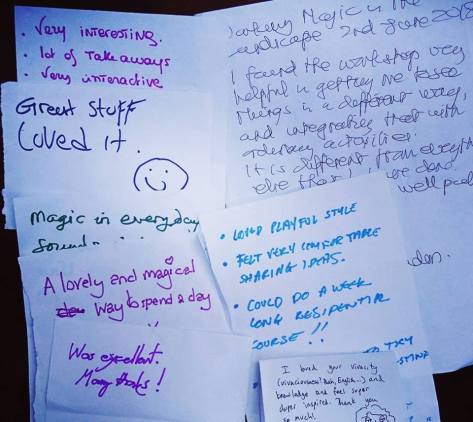 • Very interesting.
• lot of takeaways
• Very interactive
Great Stuff
Loved it.
Magic in everyday
A lovely and magical
way to spend a day
Was excellent.
Many thanks!
Magic in the
Landscape 2nd June 2018
I found the workshop very
helpful in getting me to see
things in a different way,
and integrating that with
ordinary activities.
It is different from everything
else that I
well
• LOVED PLAYFUL STYLE
• FELT VERY COMFORTABLE
SHARING IDEAS.
• COULD DO A WEEK
LONG RESIDENTIAL
COURSE!!
TO TRY
I loved your vivacity
(vivaciousness? Hmm, English...) and
knowledge and feel super
duper inspired. Thank you
so much!